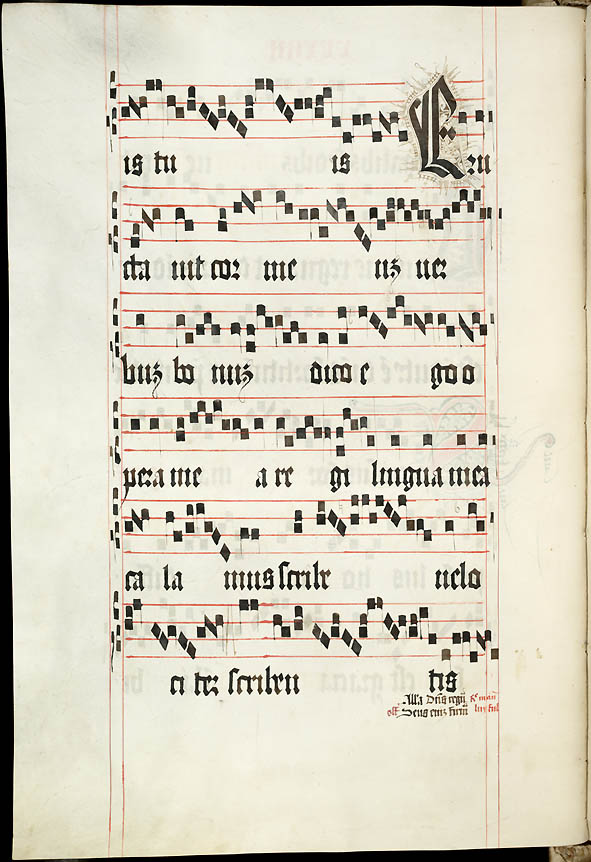 is tu is Eru
cta uit cor me uz uer
buz bo nuz dico e go o
pera me a re gi lingua mea
ca la mus scribe uelo
ci ter scriben tis
All'a Deus
Deus